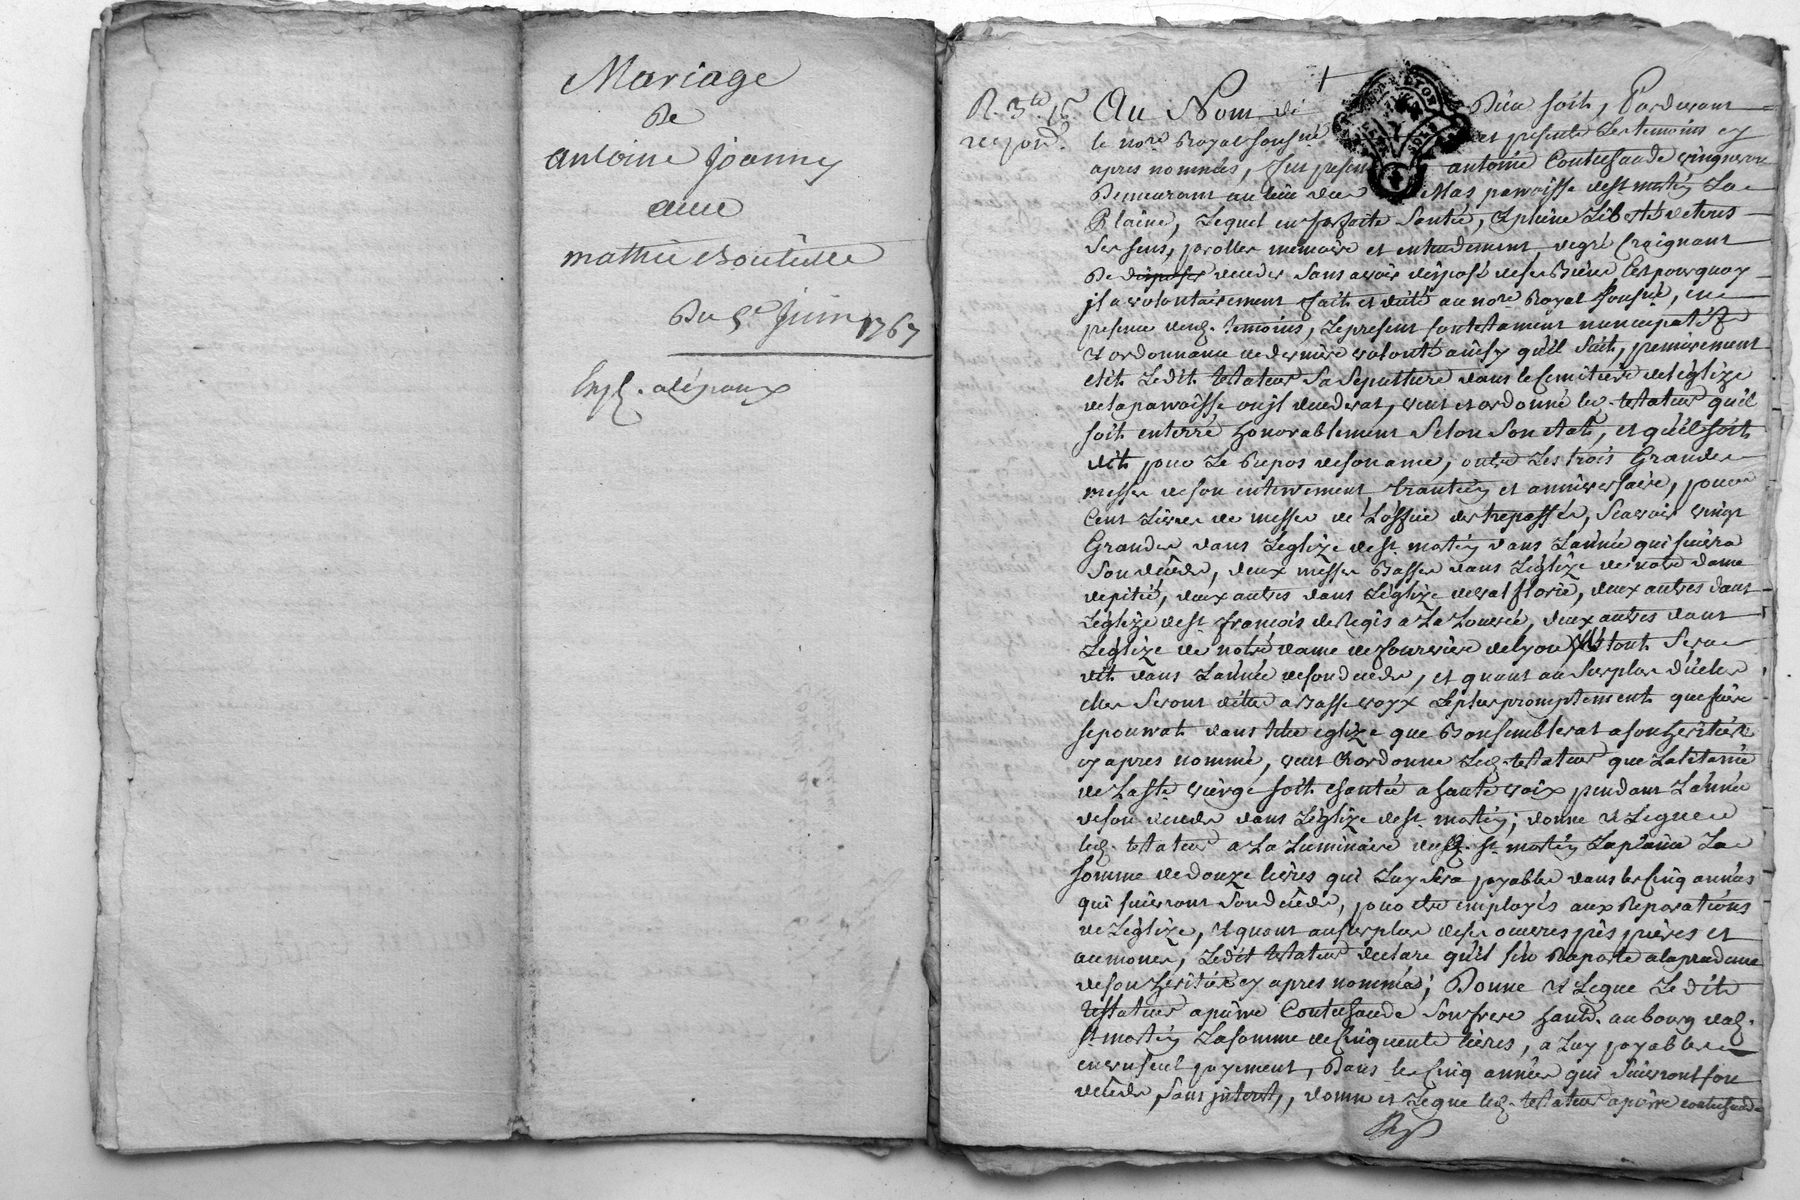 Mariage
De
antoine Joanny
avec
mathie Bouteille
Du 5e Juin 1767
Exp. al'époux
R. 3te
Au Nom de Dieu soit, Pardevant
le nore Royal soussné et presents Les temoins cy
apres nommés, fut present antoine Contessaude vigneron
Demeurant au lieu du Mas paroisse de st martin La
Plaine, Lequel en parfaite santée, et pleine Liberté de tous
ses sens, parolle memoire et entendement degré Craignant
De deceder sans avoir disposé de ses Biens C'est pourquoy
il a volontairement fait et dicté au nore Royal soussné, en
presence desd. temoins, Le present son testament nuncupatif
et ordonnance de derniere volonté ainsy qu'il suit, premierement
elit Ledit testateur sa sepulture dans le Cimitiere de l'églize
de la paroisse ou il decedera, veut et ordonne led. testateur qu'il
soit enterré honorablement selon son etat, et qu'il soit
dit pour Le Repos de son ame, outre Les trois Grandes
messes de son enterrement, trantein et anniversaire, pour
Cent Livres de messes de L'office des trepassés, scavoir vingt
Grandes dans L'eglize de st martin dans L'année qui suivra
son decéde, deux messes Basses dans L'églize de notre dame
de pitié, deux autres dans L'églize de valfloris, deux autres dans
L'églize de st francois de Regis a La Louvée, deux autres dans
L'églize de notre dame de fourviere de lyon, Le tout sera
dit dans L'année de son decéde, et quant au surplus d'icelles
elles seront dittes a Basse voix Le plus promptement que faire
se pourrat dans telle eglize que Bon semblerat a son heritiere
cy apres nommé, veut et ordonne Led. testateur que La litanie
de La ste vierge soit chantée a haute voix pendant L'année
de son decéde dans L'églize de st martin; donne et Legue
led. testateur a La Luminaire dud. st martin La plaine La
somme de douze livres qui Luy sera payable dans les Cinq années
qui suivront son decéde, pour etre employés aux Reparations
de L'églize, et quant au surplus de ses oeuvres pies prieres et
aumones, Ledit testateur declare qu'il s'en Raporte a la prudence
de son heritiere cy apres nommée; Donne et Legue Ledit
testateur a pierre Contessaude son frere habt. au bourg dud.
st martin La somme de Cinquente livres, a Luy payable
en un seul payement, Dans les Cinq années qui suivront son
decéde, sans interet, donne et Legue led. testateur a pierre contessaude